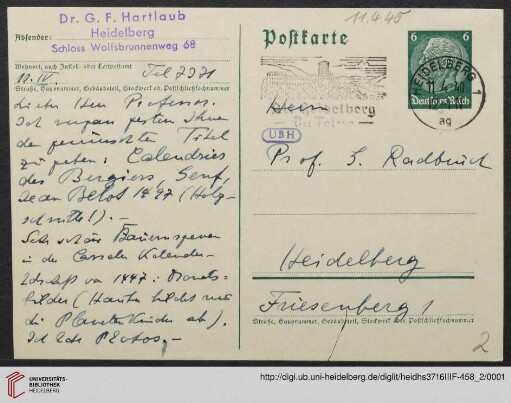 Dr. G. F. Hartlaub
Heidelberg
Absender:
Schloss Wolfsbrunnenweg 68
Wohnort, auch Zustell- oder Leitpostamt
11. IV. Tel 7071
Straße, Hausnummer, Gebäudeteil, Stockwerk od. Postschließfachnummer
Lieber Herr Professor.
Ich vergass gestern Ihnen
den gewünschten Titel
zu geben: Calendrier
des Bergiers, Genf,
Jean Belot 1497 (Holz-
schnitte!). –
Sehr schöne Bauernszenen
in der Casseler Kalender-
hdschft von 1447: Monats-
bilder (Hauber bildet nur
die Planetenkinder ab).
Ich habe Photos. –
11.4.40
Postkarte
6 6
Deutsches Reich
HEIDELBERG 1
11.4.40
ag
Heidelberg
Herrn
UBH
Prof. G. Radbruch
Heidelberg
Friesenberg 1
Straße, Hausnummer, Gebäudeteil, Stockwerk oder Postschließfachnummer
2
UNIVERSITÄTS-
BIBLIOTHEK
HEIDELBERG
http://digi.ub.uni-heidelberg.de/diglit/heidhs3716IIIF-458_2/0001